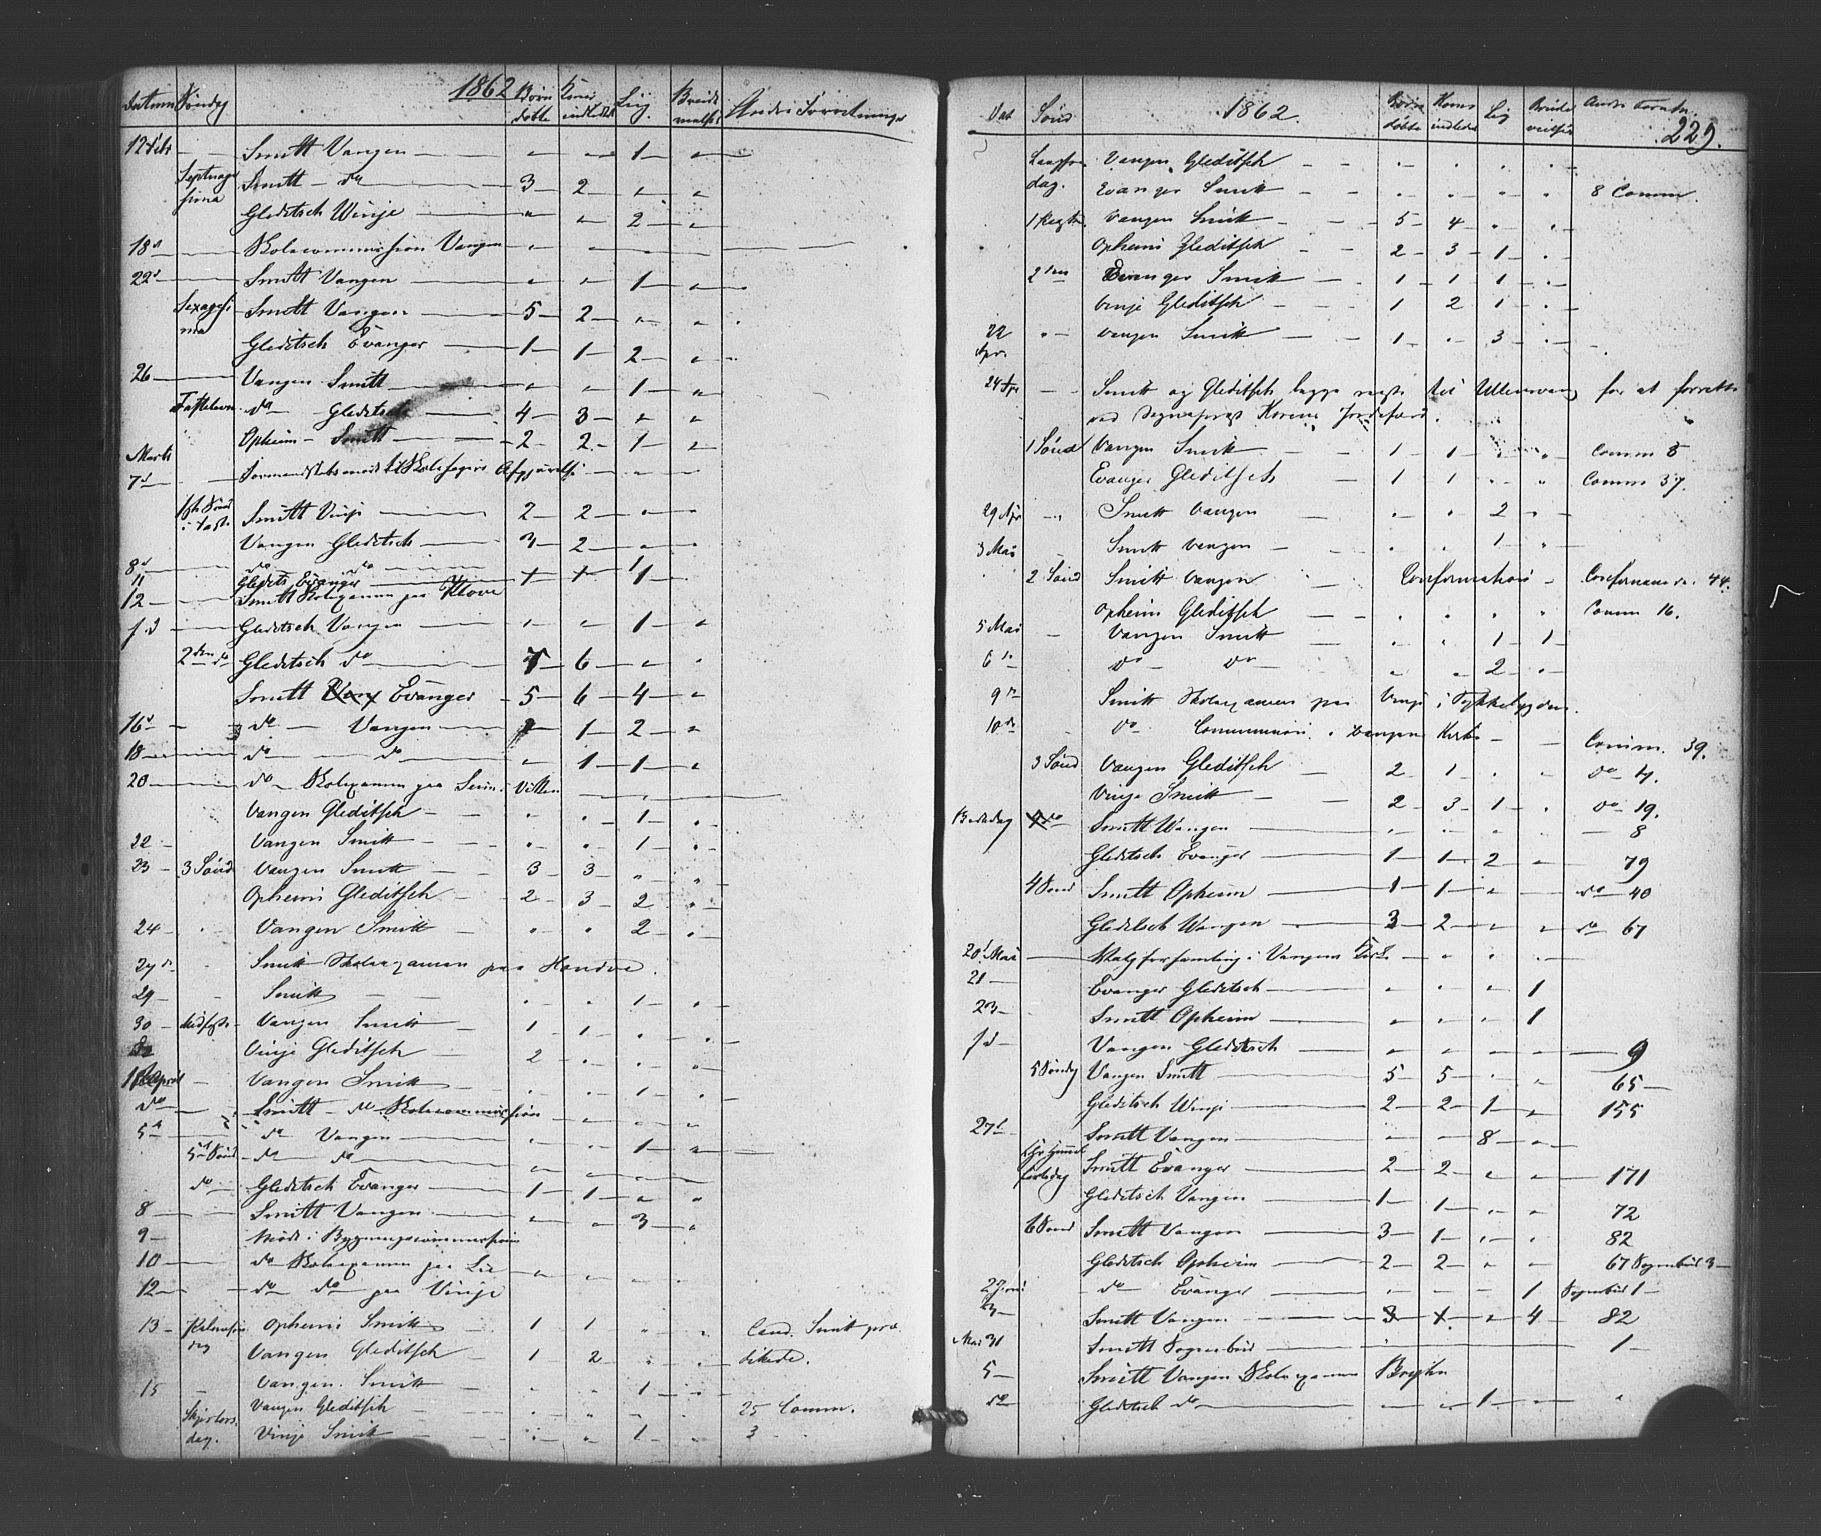 1862
Datum Søndag Børn døbte Koner indledte Lig. Andre Forretninger
12 Febr — Smitt Vangen — „ — „ — 1 — „ —
Septuage sima Smitt — do — 3 — 2 — „ — „
Gleditsch Winje — „ — „ — 2 — „ —
18 d — Skolecommission Vangen — „ — „
22 d — Smitt Vangen — „ — „ — 1 — „
Sexagesi ma Smitt Vangen — 5 — 2 — „ — „
Gleditsch Evanger — 1 — 1 — 2 — „
26 — Vangen Smitt — „ — „ — 1 — „
Fastelavn do — Gleditsch — 4 — 3 — „ — „
Opheim — Smitt — 2 — 2 — 1 — „
Marts
7 d — Afgjørelse
1ste Sønd i Faste Smitt Vinje — 2 — 2 — „ — „
Vangen Gleditsch — 3 — 2 — „ — „
8 d — do do — 1
11 Gledits Evanger — + — + — 1 —
12 — Smitt Skolexamen paa Kløve
f. d — Gleditsch Vangen — „ — „ — 1 — „
2den do Gleditsch do — 7 — 6 — „ — „
Smitt Evanger — 5 — 6 — 4 — „
16 d — do — Vangen — 1 — 2 — „
18 — do — do — „ — 1 — 1 — „
20 — do — Skolexamen paa
Vangen Gleditsch — „ — „ — 1 — „
22 — Vangen Smitt — „ — „ — 1 — „
23 — 3 Sønd Vangen Smitt — 3 — 3 — „ — „
Opheim Gleditsch — 2 — 3 — 2 — „
24 — Vangen Smitt — „ — „ — 2 — „
27 d — Smitt Skolexamen paa
29 — Smitt — „ — „ — 1 — „
30 — Midfaste Vangen Smitt — 1 — 1 — „ — „
Vinje Gleditsch — 2 — „ — „ — „
April — Vangen Smitt — „ — „ — 1 — „
do — Smitt — do Skolecommission — „ — „ — „
5 d — do Vangen — „ — „ — 1 — „
5te Sønd — do — do — „ — „ — „ — „
do — Gleditsch Evanger — 1 — 1 — „ — „
8 — Smitt Vangen — „ — „ — 3 — „
9 — Møde i Bygningscommission
10 — do Skolexamen paa
12 — do do paa Vinje
13 — Opheim Smitt — 1 1 „ „ Cand. Smitt præ
Vangen Gleditsch 1 2 „ „ dikede.
15 — Vangen Smitt — „ — „ — 1 — „
Skjertors Vangen Gleditsch „ „ „ „ 25 Comm.
dag. Vinje Smitt „ „ 1 — „ 3
1862.
Dat Sønd Børn døbte Kones indlede Lig 229.
Langfre Vangen Gleditsch — — „ „ „ „
dag. Evanger Smitt — — „ „ „ „ 8 Comm.
Vangen Smitt — — 5 — 4 — „ „
Opheim Gleditsch — — 2 — 3 — 1 — „
2den Evanger Smitt — — 1 1 1 „
Vinje Gleditsch — — 1 2 1 — „
22 Apr. „ — Vangen Smitt — — 1 — „ 3 — „
24 Apr — Smitt og Gleditsch begge til Ullensvang for at forrette
ved Jordefærd.
1 Sønd Vangen Smitt — 1 — 1 — „ „ Comm 8
Evanger Gleditsch — 1 1 — „ „ Comm 37.
29 Apr — Smitt Vangen — „ „ 2 — „
3 Mai Smitt Vangen — — „ „ 1 — „
2 Sønd Smitt Vangen — Confirmation — 44.
Opheim Gleditsch — „ „ „ „ Comm 16.
5 Mai — Vangen Smitt — „ „ 1 — 1
6 d — do — do — „ „ 2 — „
9 d — Smitt Skolexamen paa Vinje i
10 do do Communion i Vangens Kirke — — Comm. 39.
3 Sønd Vangen Gleditsch — 2 — 1 — „ „ do — 4.
Vinje Smitt — — 2 — 3 — 1 — „ do — 19.
Bededag Smitt Wangen — „ — „ — „ — „ — 8
Gleditsch Evanger — 1 — 1 — 2 — „ — 79
4 Sønd Smitt Opheim — 1 — 1 — „ — do — 40
Gleditsch Wangen — 3 — 2 — „ — „ do — 67
20 d Mai — Valgforsamling i Vangens — „ — „ — „
21 — Evanger Gleditsch — „ — „ — „ — 1
23 — Smitt Opheim — „ — „ — „ — 1
f d — Vangen Gleditsch — „ — „ — „ — 9
5 Søndag Vangen Smitt — 5 — 5 — „ — „ 65 —
Gleditsch Winje — 2 — 2 — 1 — „ — 155
27 d — Smitt Vangen — „ — „ — 8 — „ —
Chr Himmel Smitt Evanger — 2 — 2 — „ — „ — 171
fartsdag Gleditsch Vangen — 1 — 1 — „ — „ 72
6 Sønd Smitt Vangen — 3 — 1 — „ — „ 82
Gleditsch Opheim — 2 — 2 — „ — „ 67 Sognebud 3 —
2 Juni — do — Evanger — „ — „ — „ — 1 Sognebud 1 —
3 — Smitt Vangen — 3 — + — „ — 4 — 82
Mai 31 Smitt Sognebud — 1 —
5 — Smitt Vangen Skolexamen
do Gleditsch do — „ — „ — 1 — „ „